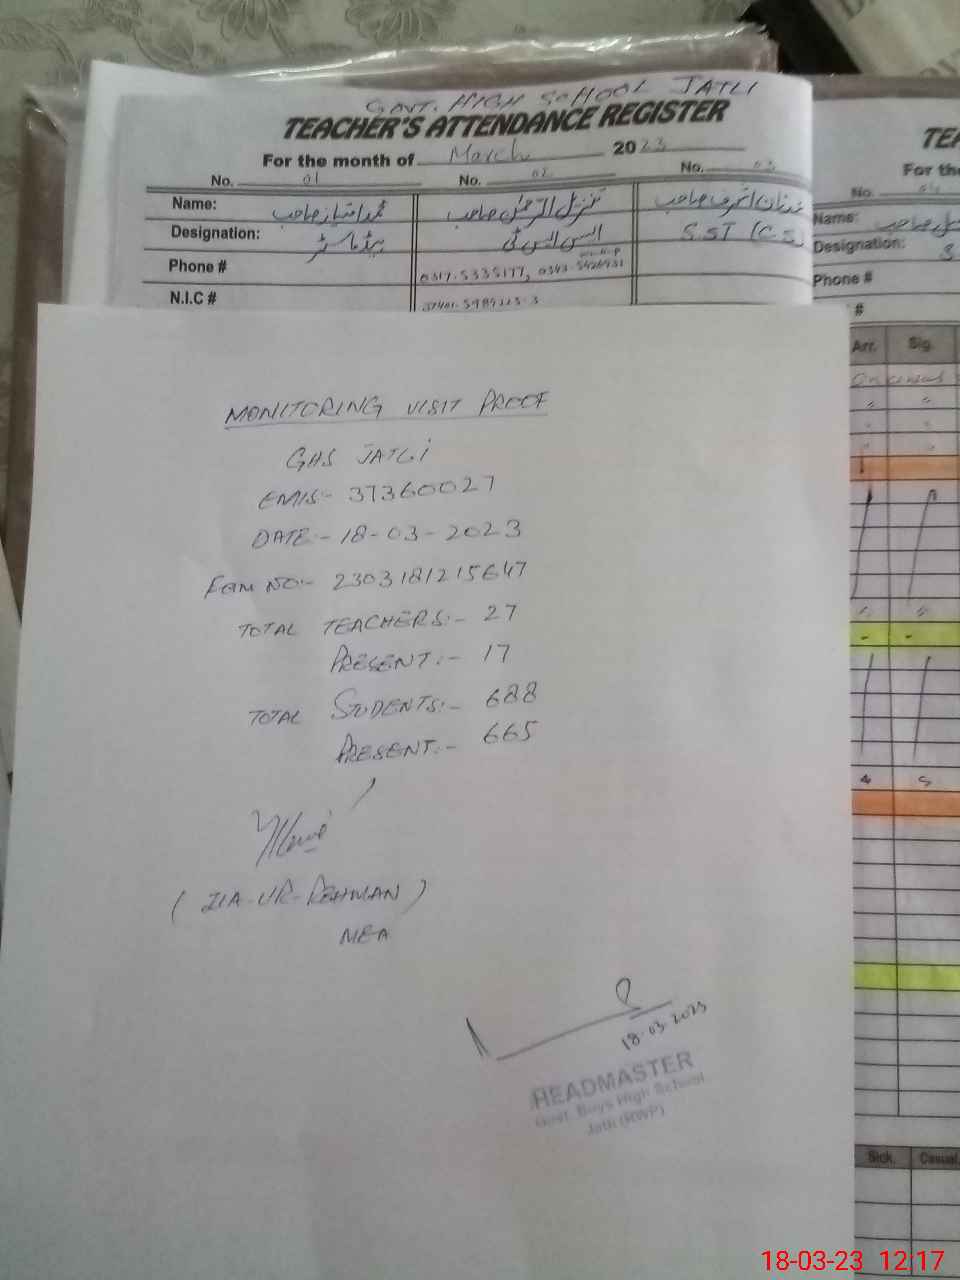 GOVT. HIGH SCHOOL JATLI
TEACHER'S ATTENDANCE REGISTER
For the month of March 2023
No. 01 No. 02 No. 03
Name: محمد امتیاز صاحب تنزیل الرحمٰن صاحب عدنان اشرف صاحب
Designation: ہیڈ ماسٹر ایس ایس ٹی SST (CS)
Phone # 0317-5335177,
N.I.C #
TEA
For the
No. 04
Name:
Designation: S
Phone #
#
Arr. Sig.
MONITORING VISIT PROOF
GHS JATLi
EMIS:- 37360027
DATE:- 18-03-2023
FORM NO:- 2303181215647
TOTAL TEACHERS:- 27
PRESENT:- 17
TOTAL STUDENTS:- 688
PRESENT:- 665
(ZIA-UR-REHMAN)
MEA
18-03-2023
HEADMASTER
Govt. Boys High School
Jatli (RWP)
Sick. Casual
18-03-23 12:17